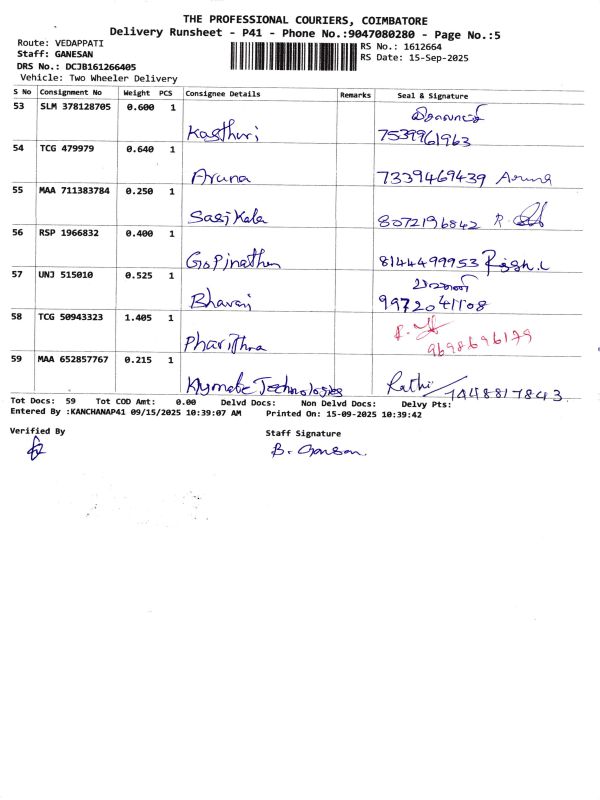 THE PROFESSIONAL COURIERS, COIMBATORE
Delivery Runsheet - P41 - Phone No.:9047080280 - Page No.:5
Route: VEDAPPATI
Staff: GANESAN
DRS No.: DCJB161266405
Vehicle: Two Wheeler Delivery
RS No.: 1612664
RS Date: 15-Sep-2025
S No Consignment No Weight PCS Consignee Details Remarks Seal & Signature
53 SLM 378128705 0.600 1
Kasthuri 7539961963
54 TCG 479979 0.640 1
Aruna 7339469439 Aruna
55 MAA 711383784 0.250 1
Sasikala 8072196842 R.
56 RSP 1966832 0.400 1
Gopinathan 8144499953
57 UNJ 515010 0.525 1
Bhavani 9972041108
58 TCG 50943323 1.405 1
Pharithra 9698696179
59 MAA 652857767 0.215 1
Technologies Rathi 7448817843
Tot Docs: 59 Tot COD Amt: 0.00 Delvd Docs: Non Delvd Docs: Delvy Pts:
Entered By :KANCHANAP41 09/15/2025 10:39:07 AM Printed On: 15-09-2025 10:39:42
Verified By Staff Signature
B.